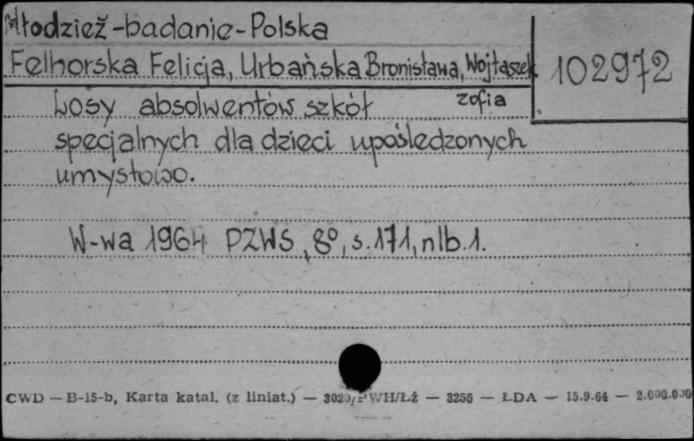 Młodzież-badanie-Polska
Felhorska Felicja, Urbańska Bronisława, Wojtaszek
zofia
102972
Losy absolwentów szkół
specjalnych dla dzieci upośledzonych
umysłowo.
W-wa 1964 PZWS, 8°, s.171, nlb.1.
CWD — B-15-b, Karta katal. (z liniat.) — 3029/PWH/Łź — 3256 — ŁDA — 15.9.64 — 2.000.000